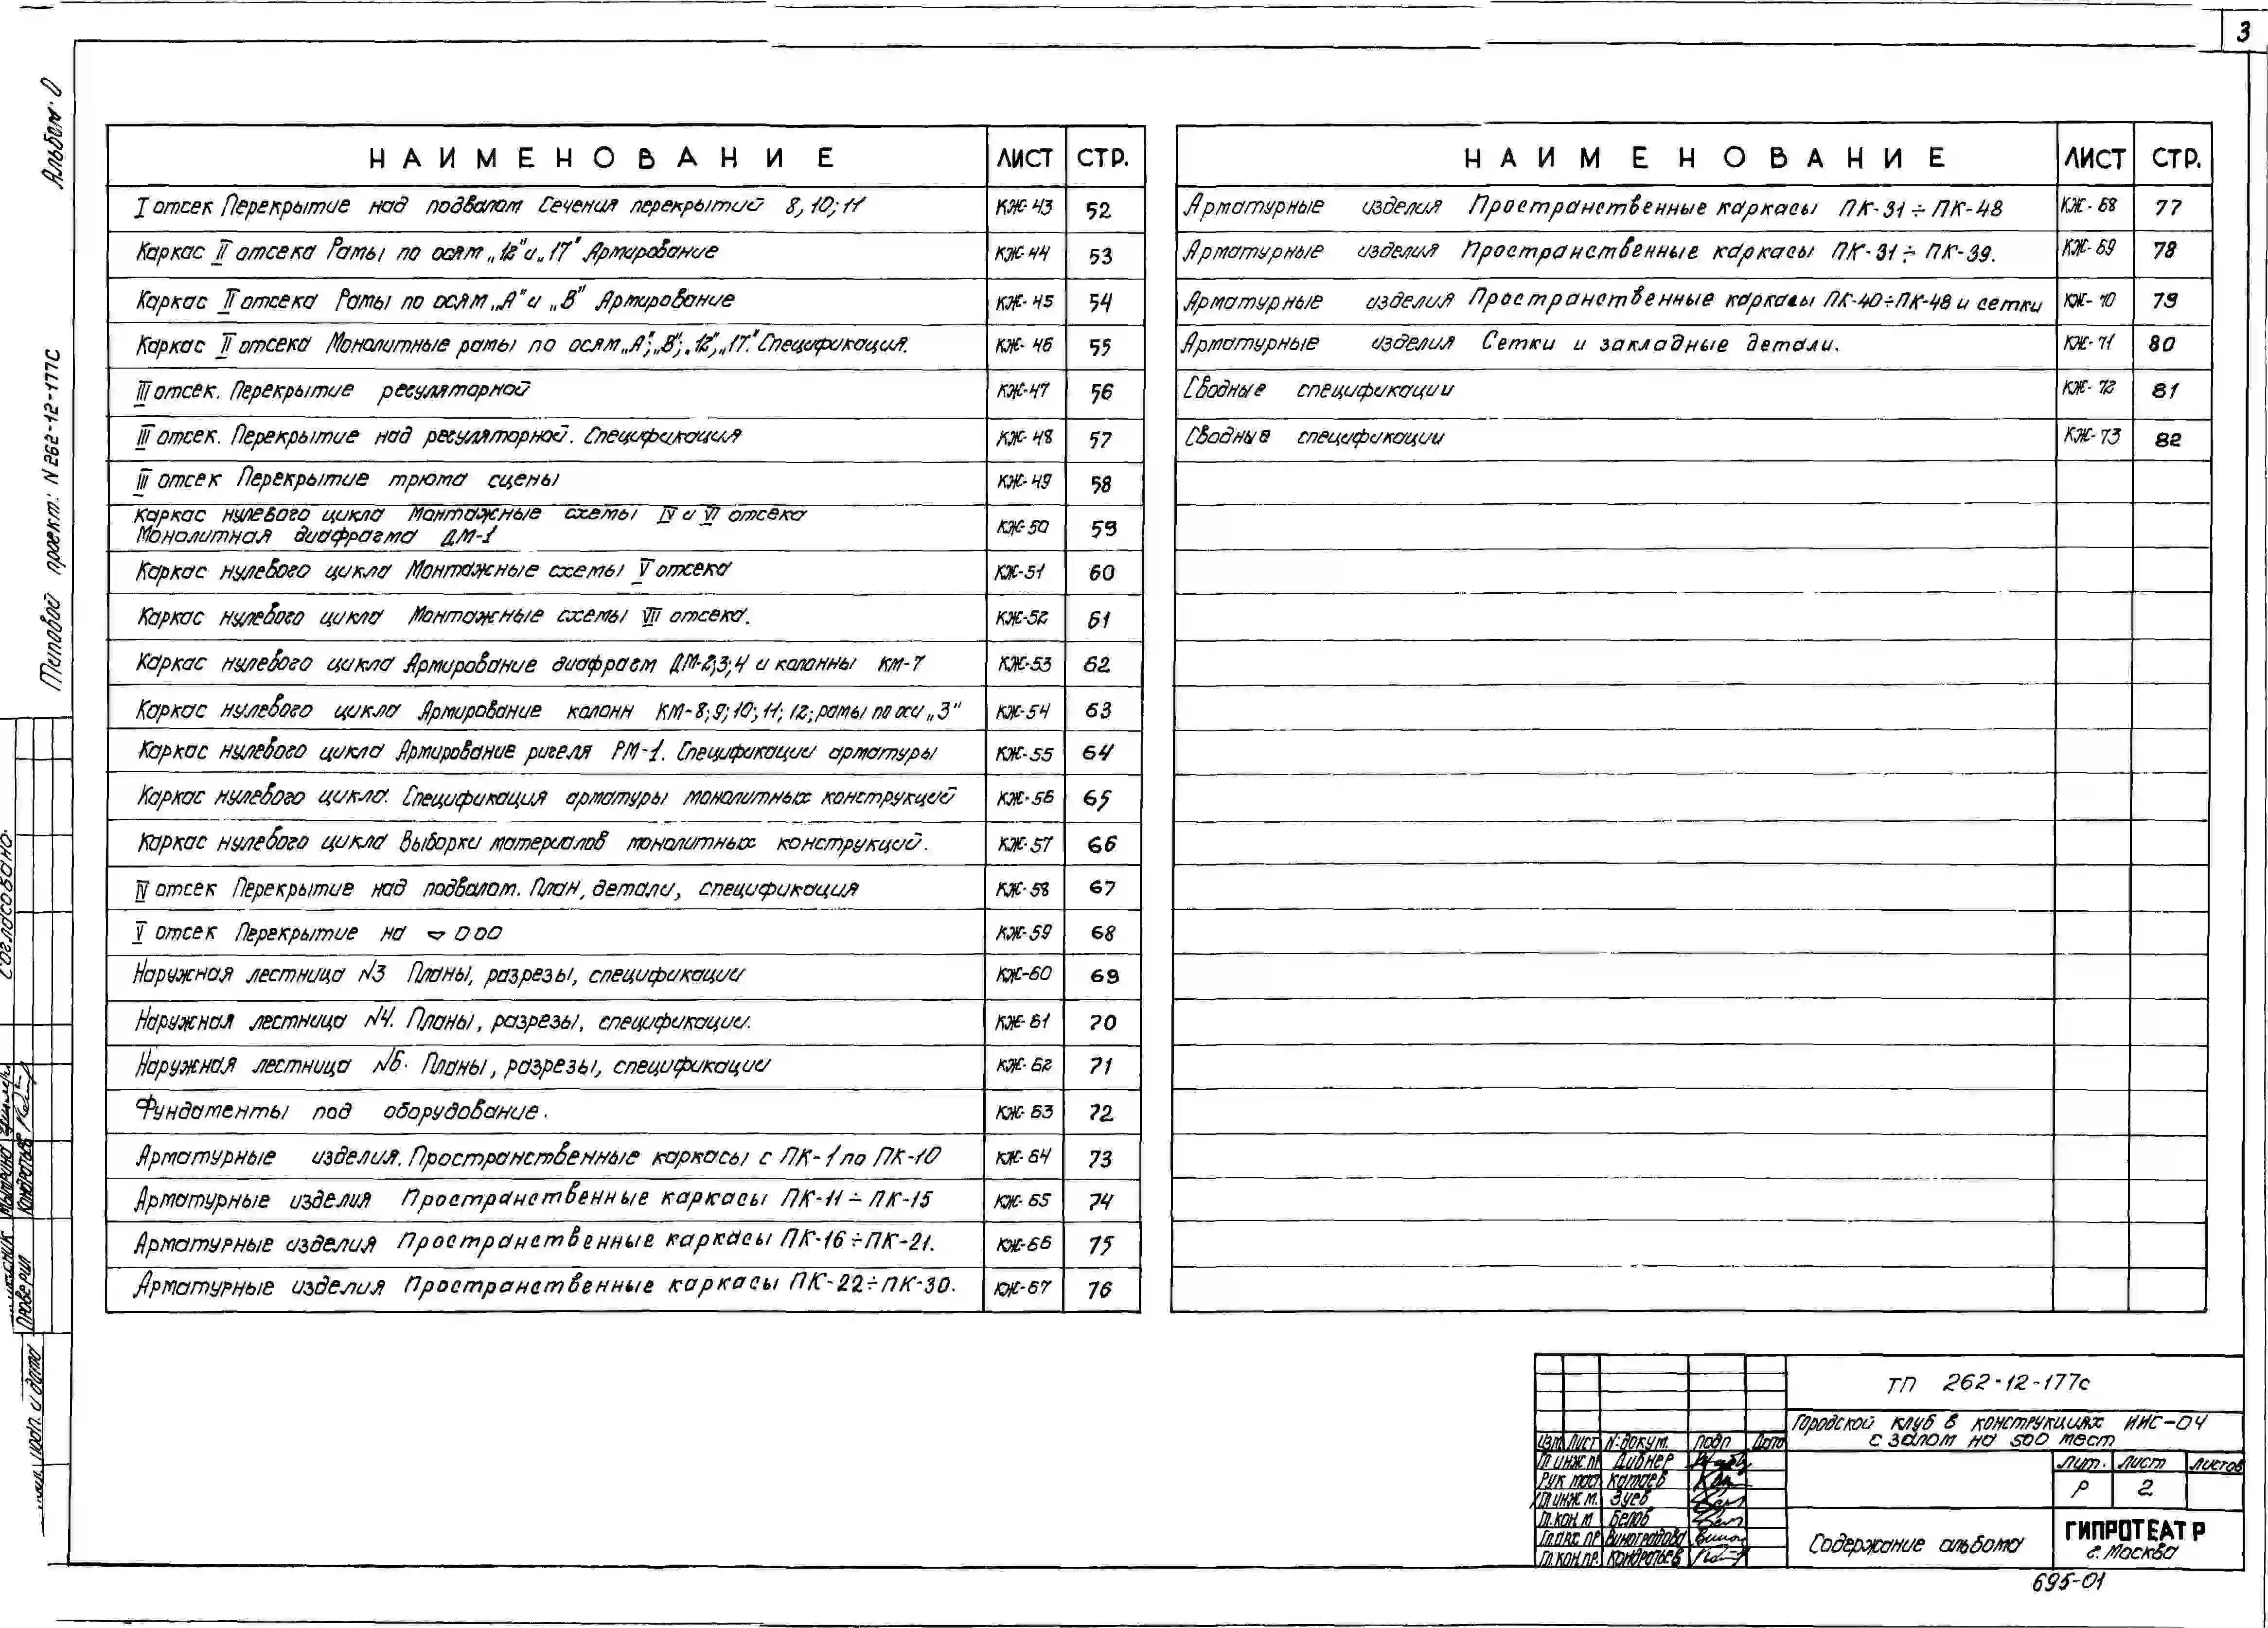 3
Альбом: 0
Типовой проект: N 262-12-177С
Согласовано:
Проверил Кондратьев
подп. и дата
НАИМЕНОВАНИЕ ЛИСТ СТР.
I отсек Перекрытие над подвалом Сечения перекрытий 8, 10; 11 КЖ-43 52
Каркас II отсека Рамы по осям „12" и „17" Армирование КЖ-44 53
Каркас II отсека Рамы по осям „А" и „В" Армирование КЖ-45 54
Каркас II отсека Монолитные рамы по осям „А"; „В"; „12", „17". Спецификация. КЖ-46 55
III отсек. Перекрытие регуляторной КЖ-47 56
III отсек. Перекрытие над регуляторной. Спецификация КЖ-48 57
III отсек Перекрытие трюма сцены КЖ-49 58
Каркас нулевого цикла Монтажные схемы IV и VI отсека
Монолитная диафрагма ДМ-1 КЖ-50 59
Каркас нулевого цикла Монтажные схемы V отсека КЖ-51 60
Каркас нулевого цикла Монтажные схемы VII отсека. КЖ-52 61
Каркас нулевого цикла Армирование диафрагм ДМ-2;3;4 и колонны КМ-7 КЖ-53 62
Каркас нулевого цикла Армирование колонн КМ-8; 9; 10; 11; 12; рамы по оси „З" КЖ-54 63
Каркас нулевого цикла Армирование ригеля РМ-1. Спецификации арматуры КЖ-55 64
Каркас нулевого цикла. Спецификация арматуры монолитных конструкций КЖ-56 65
Каркас нулевого цикла Выборки материалов монолитных конструкций. КЖ-57 66
IV отсек Перекрытие над подвалом. План, детали, спецификация КЖ-58 67
V отсек Перекрытие на 0 00 КЖ-59 68
Наружная лестница N3 Планы, разрезы, спецификации КЖ-60 69
Наружная лестница N4. Планы, разрезы, спецификации. КЖ-61 70
Наружная лестница N6. Планы, разрезы, спецификации КЖ-62 71
Фундаменты под оборудование. КЖ-63 72
Арматурные изделия. Пространственные каркасы с ПК-1 по ПК-10 КЖ-64 73
Арматурные изделия Пространственные каркасы ПК-11 ÷ ПК-15 КЖ-65 74
Арматурные изделия Пространственные каркасы ПК-16 ÷ ПК-21. КЖ-66 75
Арматурные изделия Пространственные каркасы ПК-22 ÷ ПК-30. КЖ-67 76
НАИМЕНОВАНИЕ ЛИСТ СТР.
Арматурные изделия Пространственные каркасы ПК-31 ÷ ПК-48 КЖ-68 77
Арматурные изделия Пространственные каркасы ПК-31 ÷ ПК-39. КЖ-69 78
Арматурные изделия Пространственные каркасы ПК-40 ÷ ПК-48 и сетки КЖ-70 79
Арматурные изделия Сетки и закладные детали. КЖ-71 80
Сводные спецификации КЖ-72 81
Сводные спецификации КЖ-73 82
ТП 262-12-177с
Городской клуб в конструкциях ИИС-04
с залом на 500 мест
Изм Лист N: докум. подп Дата
Гл инж пр Дибнер
Рук маст Катаев
Гл инж м. Зуев
Гл. кон. м Белов
Гл. арх. пр Виноградова
Гл. кон. пр. Кондратьев
Лит. Лист Листов
Р 2
Содержание альбома
ГИПРОТЕАТР
г. Москва
695-01